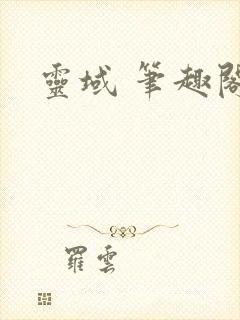 靈域 筆趣閣
羅雲